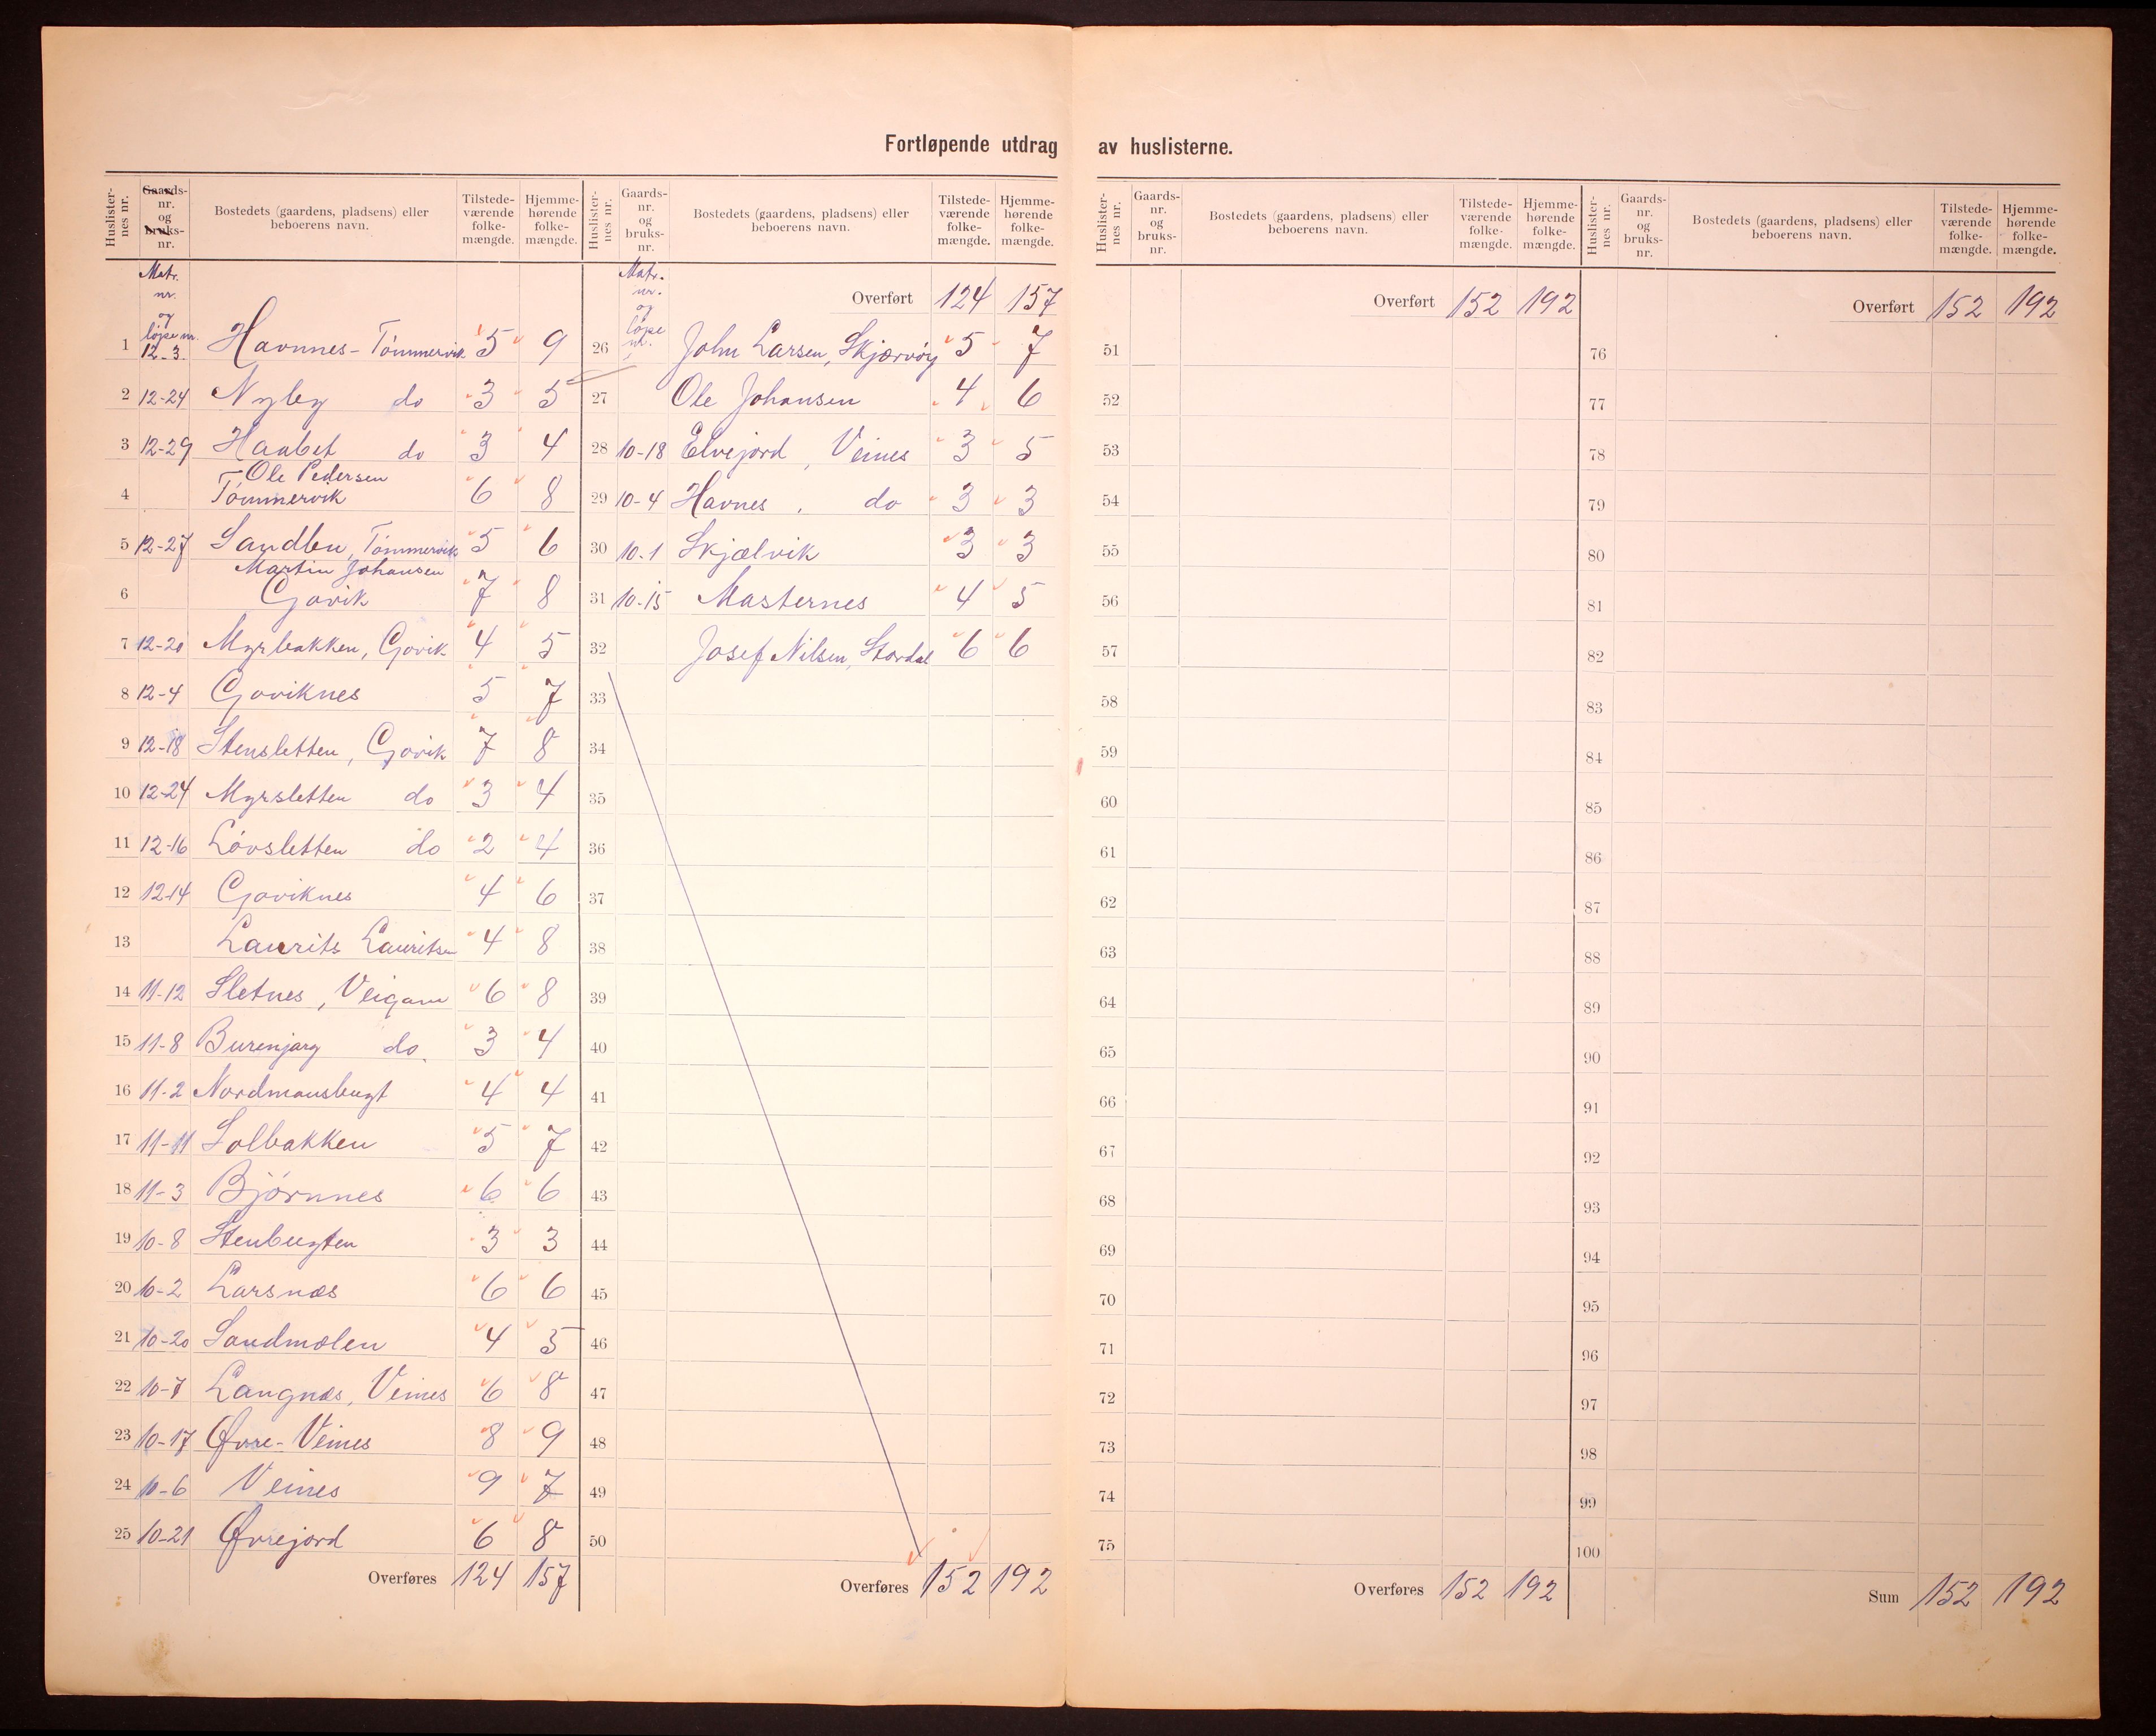 Fortløpende utdrag av huslisterne.
Huslister-
nes nr.
Gaards-
nr.
og
bruks-
nr.
Bostedets (gaardens, pladsens) eller
beboerens navn.
Tilstede-
værende
folke-
mængde.
Hjemme-
hørende
folke-
mængde.
Matr.
nr.
og
løpe nr.
1 12-3 Havnnes - Tömmervik 5 9
2 12-24 Nyby do 3 5
3 12-29 Haabet do 3 4
Ole Pedersen
4 Tömmervik 6 8
5 12-27 Sandbu, Tömmervik 5 6
Martin Johansen
6 Gjovik 7 8
7 12-20 Myrbakken, Gjovik 4 5
8 12-4 Gjoviknes 5 7
9 12-18 Stensletten, Gjovik 7 8
10 12-24 Myrsletten do 3 4
11 12-16 Lövsletten do 2 4
12 12-14 Gjoviknes 4 6
13 Laurits Lauritsen 4 8
14 11-12 Sletnes, 6 8
15 11-8 Burenjarg do. 3 4
16 11-2 Nordmansbugt 4 4
17 11-11 Solbakken 5 7
18 11-3 Björnnes 6 6
19 10-8 Stenbugten 3 3
20 10-2 Larsnæs 6 6
21 10-20 Sandmolen 4 5
22 10-7 Langnæs, Veines 6 8
23 10-17 Øvre-Veines 8 9
24 10-6 Veines 9 7
25 10-21 Øvrejord 6 8
Overføres 124 157
Huslister-
nes nr.
Gaards-
nr.
og
bruks-
nr.
Bostedets (gaardens, pladsens) eller
beboerens navn.
Tilstede-
værende
folke-
mængde.
Hjemme-
hørende
folke-
mængde.
Matr.
nr.
og
løpe
nr.
Overført 124 157
26 John Larsen, Skjærvöy 5 7
27 Ole Johansen 4 6
28 10-18 Elvejord, Veines 3 5
29 10-4 Havnes, do 3 3
30 10.1 Skjælvik 3 3
31 10-15 Masternes 4 5
32 Josef Nilsen, Stordal 6 6
33
34
35
36
37
38
39
40
41
42
43
44
45
46
47
48
49
50
Overføres 152 192
Huslister-
nes nr.
Gaards-
nr.
og
bruks-
nr.
Bostedets (gaardens, pladsens) eller
beboerens navn.
Tilstede-
værende
folke-
mængde.
Hjemme-
hørende
folke-
mængde.
Overført 152 192
51
52
53
54
55
56
57
58
59
60
61
62
63
64
65
66
67
68
69
70
71
72
73
74
75
Overføres 152 192
Huslister-
nes nr.
Gaards-
nr.
og
bruks-
nr.
Bostedets (gaardens, pladsens) eller
beboerens navn.
Tilstede-
værende
folke-
mængde.
Hjemme-
hørende
folke-
mængde.
Overført 152 192
76
77
78
79
80
81
82
83
84
85
86
87
88
89
90
91
92
93
94
95
96
97
98
99
100
Sum 152 192